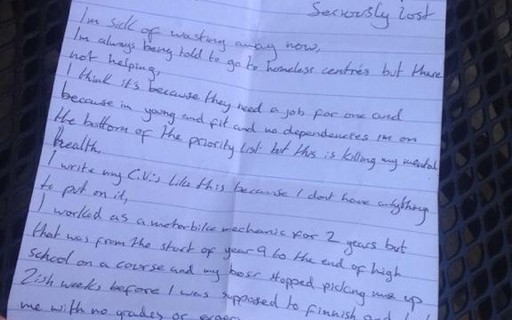 Seriously lost
I'm sick of wasting away now,
I'm always being told to go to homeless centres but there
not helping,
I think it's because they need a job for one and
because im young and fit and no dependencies im on
the bottom of the priority list but this is killing my mental
health.
I write my C.V.s like this because I dont have anything
to put on it,
I worked as a motorbike mechanic for 2 years but
that was from the start of year 9 to the end of high
school on a course and my boss stopped picking me up
2ish weeks before I was supposed to finnish and
me with no grades or